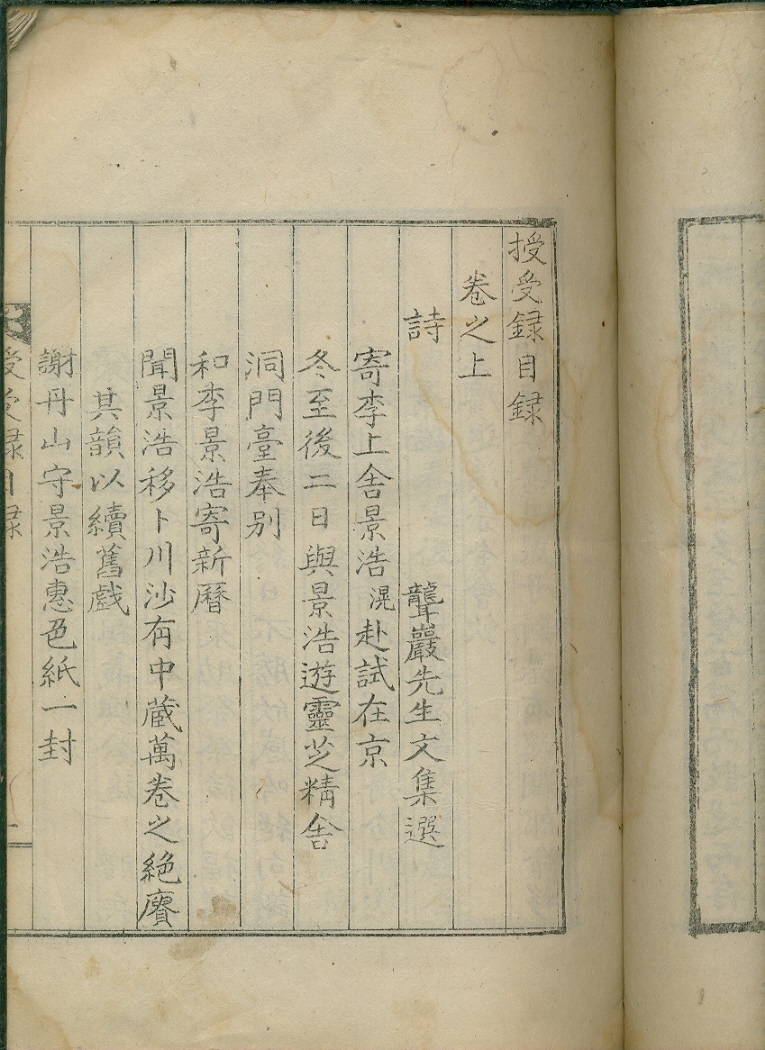 授受録目録
卷之上
詩 聾巖先生文集選
寄李上舍景浩滉赴試在京
冬至後二日與景浩遊靈芝精舍
洞門臺奉別
和李景浩寄新曆
聞景浩移卜川沙有中蔵萬卷之絶賡
其韻以續舊戲
謝丹山守景浩惠色紙一封
授受録目録
一